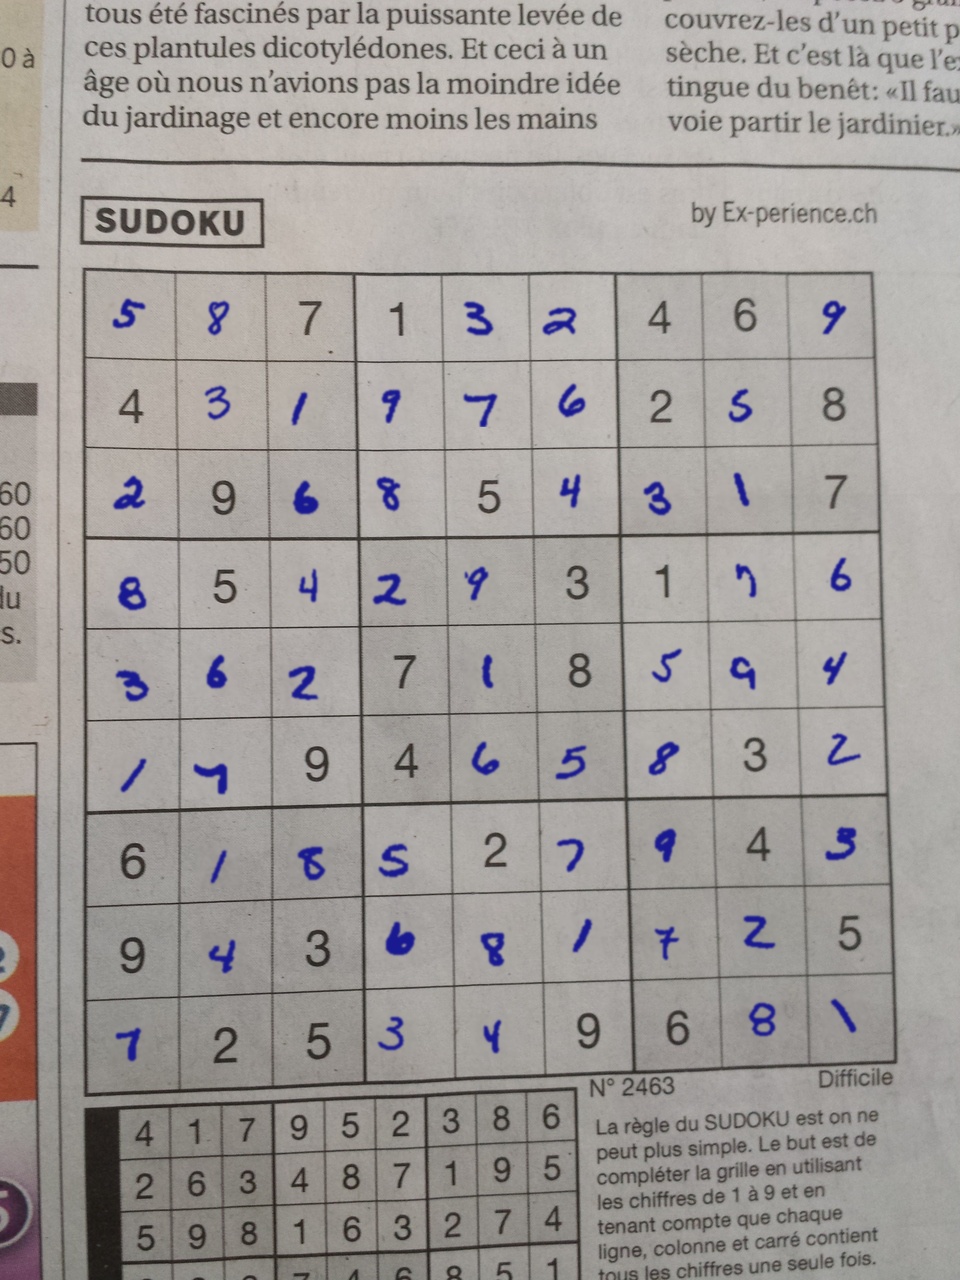 tous été fascinés par la puissante levée de
ces plantules dicotylédones. Et ceci à un
âge où nous n'avions pas la moindre idée
du jardinage et encore moins les mains
couvrez-les d'un petit p
sèche. Et c'est là que l'e
tingue du benêt: «Il fau
voie partir le jardinier.»
0 à
4
60
60
50
du
s.
SUDOKU
by Ex-perience.ch
5 8 7 1 3 2 4 6 9
4 3 1 9 7 6 2 5 8
2 9 6 8 5 4 3 1 7
8 5 4 2 9 3 1 7 6
3 6 2 7 1 8 5 9 4
1 7 9 4 6 5 8 3 2
6 1 8 5 2 7 9 4 3
9 4 3 6 8 1 7 2 5
7 2 5 3 4 9 6 8 1
N° 2463
Difficile
4 1 7 9 5 2 3 8 6
2 6 3 4 8 7 1 9 5
5 9 8 1 6 3 2 7 4
7 4 6 8 5 1
La règle du SUDOKU est on ne
peut plus simple. Le but est de
compléter la grille en utilisant
les chiffres de 1 à 9 et en
tenant compte que chaque
ligne, colonne et carré contient
tous les chiffres une seule fois.